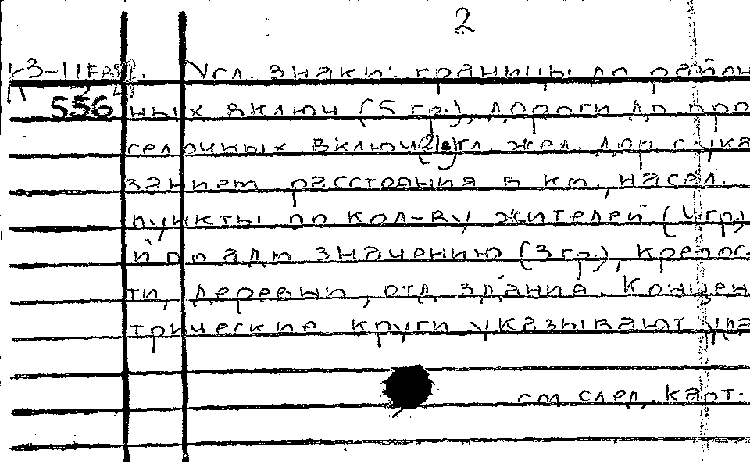 2
К3-11 Усл. знаки: границы до район
556 ных включ (5 гр.), дороги до про
селочных включ. (2 гр) жел. дор с ука
занием расстояния в км, насел.
пункты по кол-ву жителей (4 гр)
и по адм значению (3 гр), крепос
ти, деревни, отд здания. Концен
трические круги указывают уда
см след. карт.